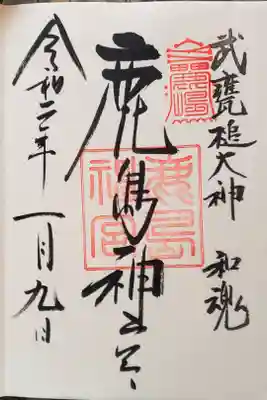 武甕槌大神 和魂
鹿島神宮
鹿島
神宮
令和二年一月九日